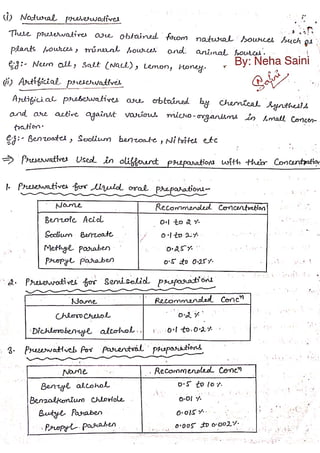 (i) Natural preservatives
These preservatives are obtained from natural sources such as
plants sources, mineral sources and animal sources.
By: Neha Saini
eg:- Neem oil, salt (NaCl), Lemon, Honey.
N Saini
(ii) Artificial preservatives
Artificial preservatives are obtained by chemical synthesis
and are active against various micro-organisms in small concen-
tration.
eg:- Benzoates, Sodium benzoate, Nitrites etc
⇒ Preservatives Used in different preparations with their Concentration
1. Preservatives for liquid oral preparations-
Name Recommended Concentration
Benzoic Acid 0.1 to 2%
Sodium Benzoate 0.1 to 2%
Methyl Paraben 0.25%
Propyl Paraben 0.5 to 0.25%
2. Preservatives for Semisolid preparations
Name Recommended Concn
Chlorocresol 0.2%
Dichlorobenzyl alcohol 0.1 to 0.2%
3. Preservatives for parentral preparations
Name Recommended Concn
Benzyl alcohol 0.5 to 10%
Benzalkonium Chloride 0.01%
Butyl Paraben 0.015%
Propyl Paraben 0.005 to 0.002%